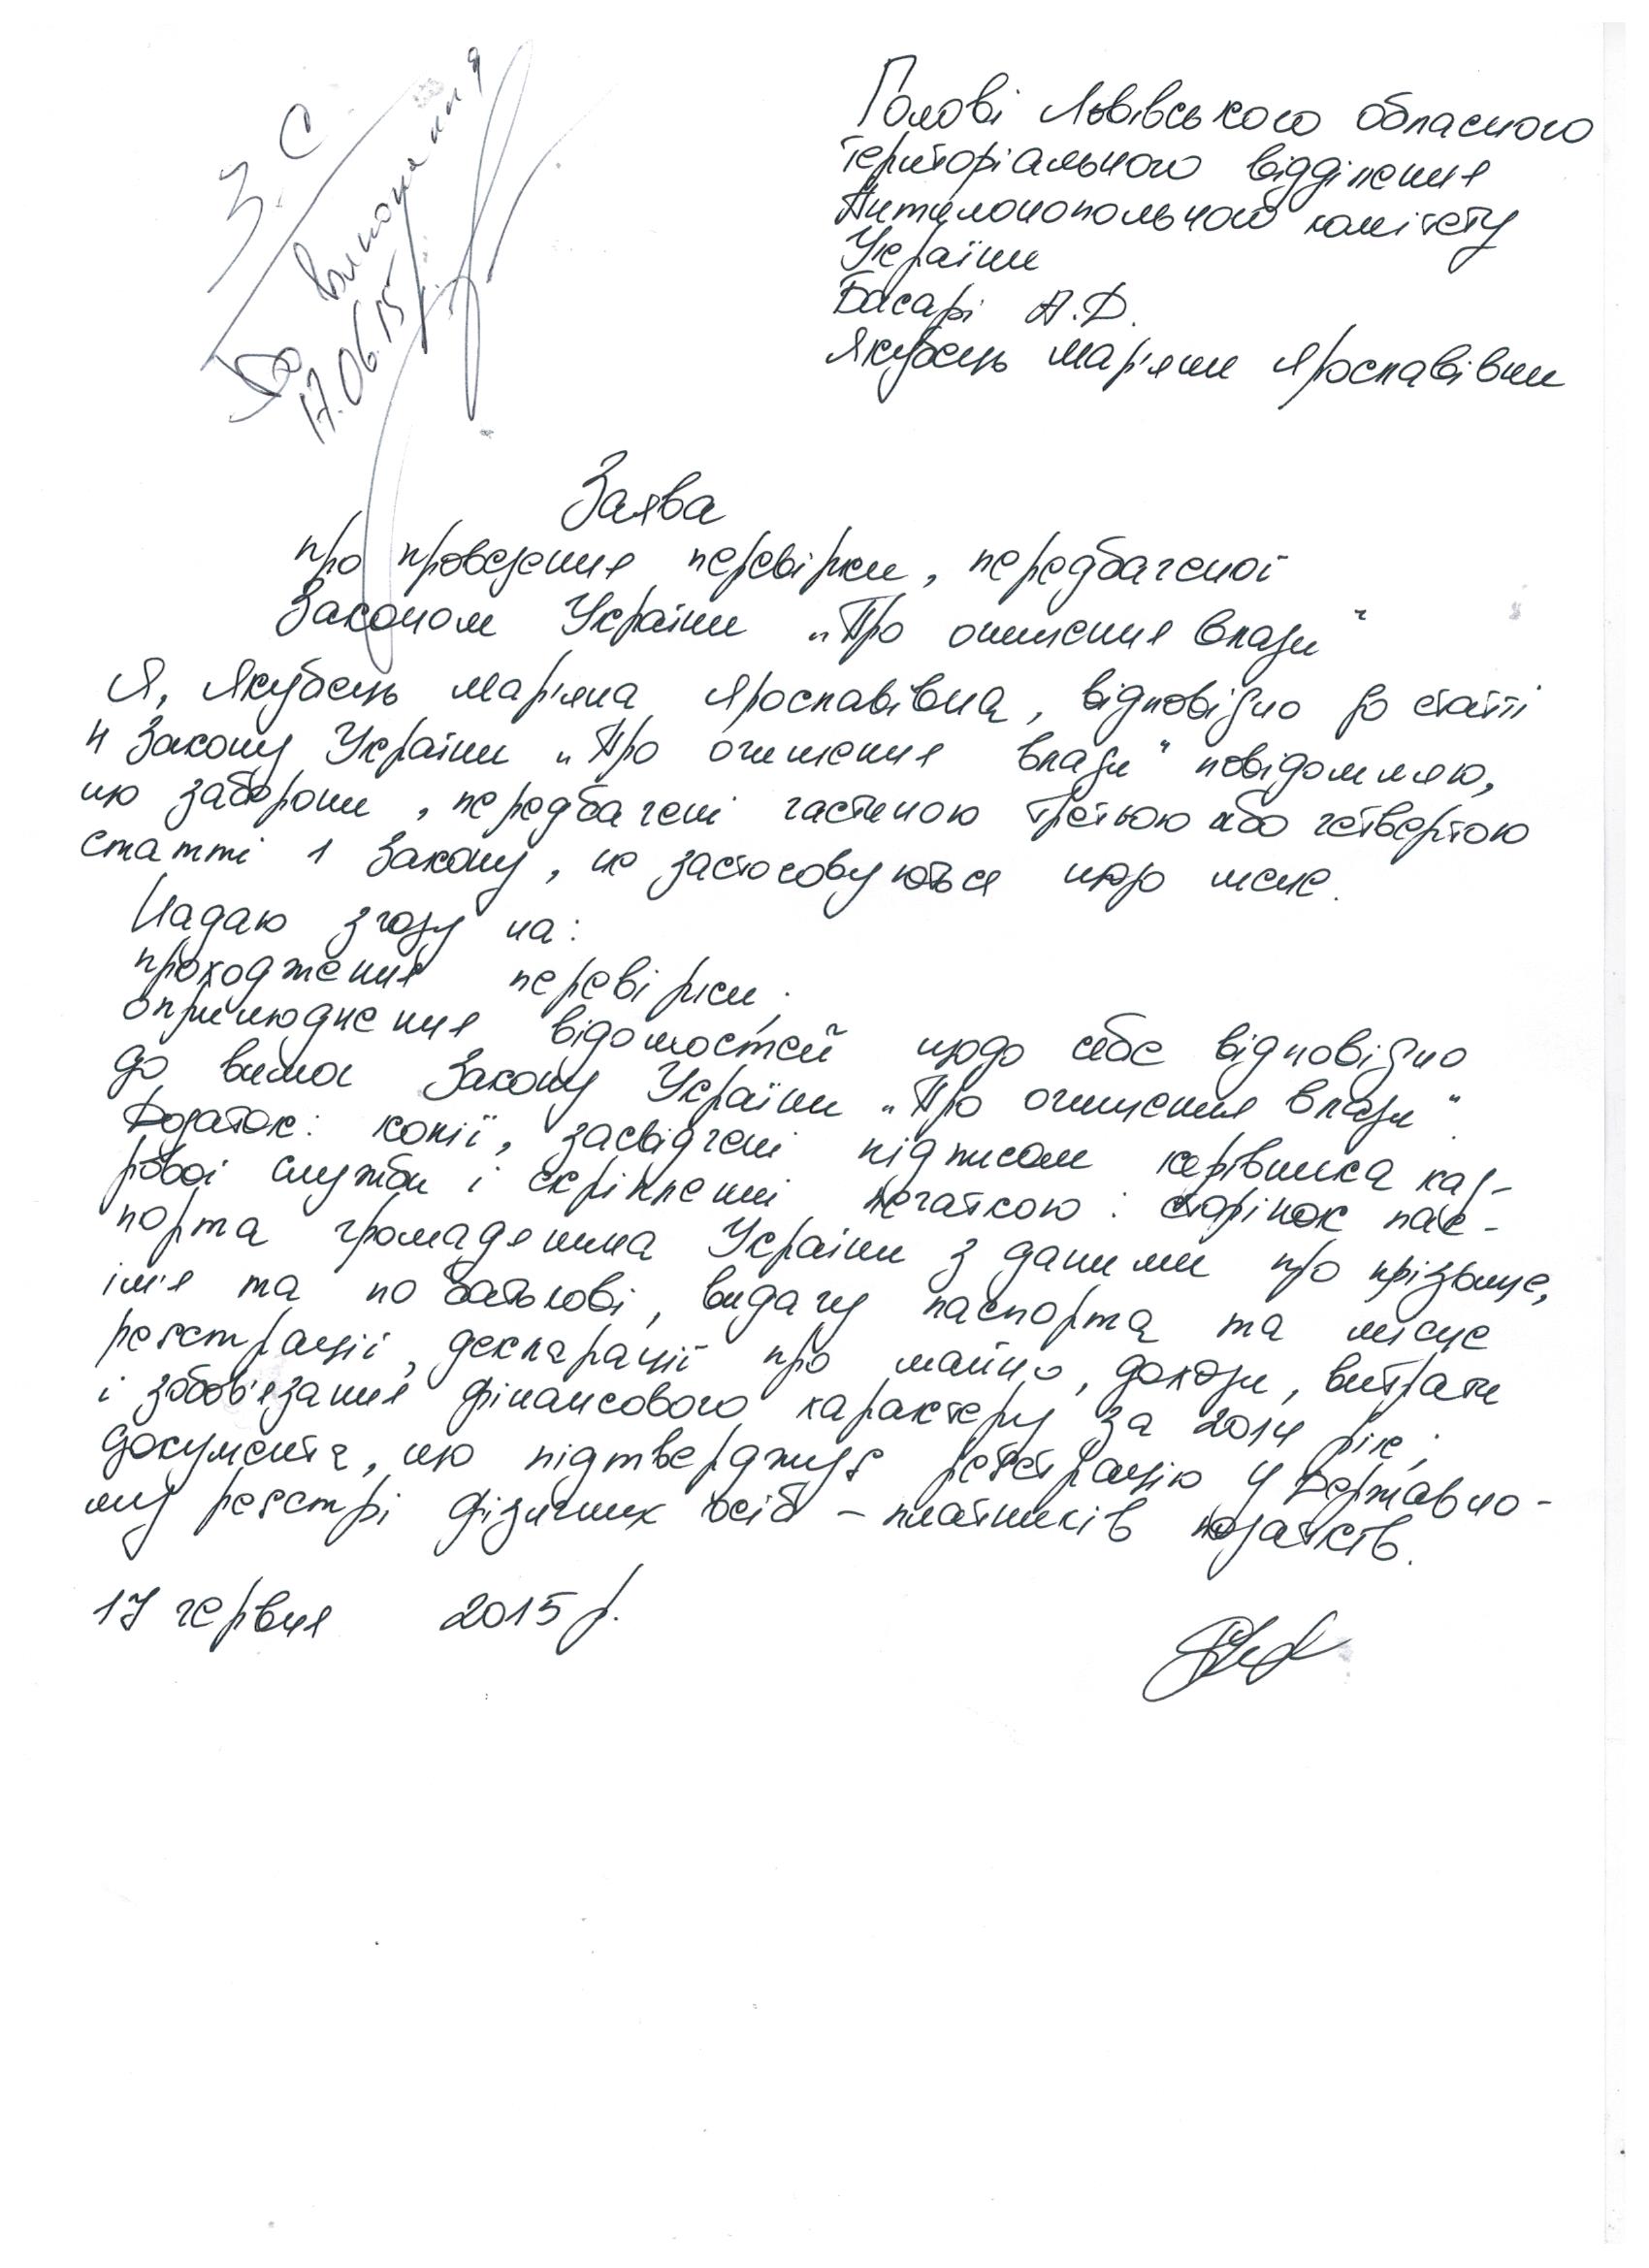 З. С
До виконання
17.06.15
Голові Львівського обласного
територіального відділення
Антимонопольного комітету
України
Басарі А.Д.
Якубець Мар'яни Ярославівни
Заява
про проведення перевірки, передбаченої
Законом України „Про очищення влади"
Я, Якубець Мар'яна Ярославівна, відповідно до статті
4 Закону України „Про очищення влади" повідомляю,
що заборони, передбачені частиною третьою або четвертою
статті 1 Закону, не застосовуються щодо мене.
Надаю згоду на:
проходження перевірки;
оприлюднення відомостей щодо себе відповідно
до вимог Закону України „Про очищення влади".
Додаток: копії, засвідчені підписом керівника кад-
рової служби і скріплені печаткою: сторінок пас-
порта громадянина України з даними про прізвище,
ім'я та по батькові, видачу паспорта та місце
реєстрації, декларації про майно, доходи, витрати
і зобов'язання фінансового характеру за 2014 рік;
документа, що підтверджує реєстрацію у Державно-
му реєстрі фізичних осіб – платників податків.
17 червня 2015 р.